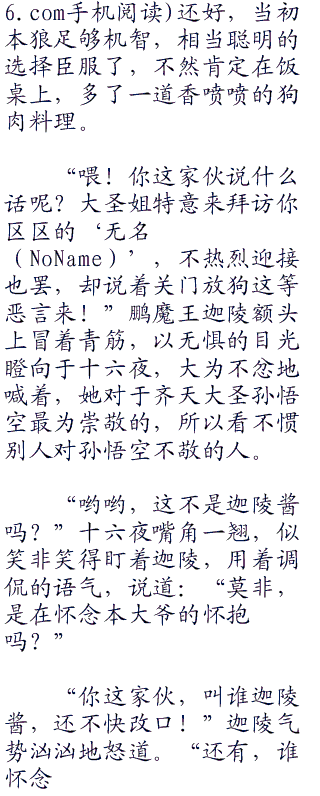 6.com手机阅读)还好，当初
本狼足够机智，相当聪明的
选择臣服了，不然肯定在饭
桌上，多了一道香喷喷的狗
肉料理。
“喂！你这家伙说什么
话呢？大圣姐特意来拜访你
区区的‘无名
（NoName）’，不热烈迎接
也罢，却说着关门放狗这等
恶言来！”鹏魔王迦陵额头
上冒着青筋，以无惧的目光
瞪向于十六夜，大为不忿地
喊着，她对于齐天大圣孙悟
空最为崇敬的，所以看不惯
别人对孙悟空不敬的人。
“哟哟，这不是迦陵酱
吗？”十六夜嘴角一翘，似
笑非笑得盯着迦陵，用着调
侃的语气，说道：“莫非，
是在怀念本大爷的怀抱
吗？”
“你这家伙，叫谁迦陵
酱，还不快改口！”迦陵气
势汹汹地怒道。“还有，谁
怀念